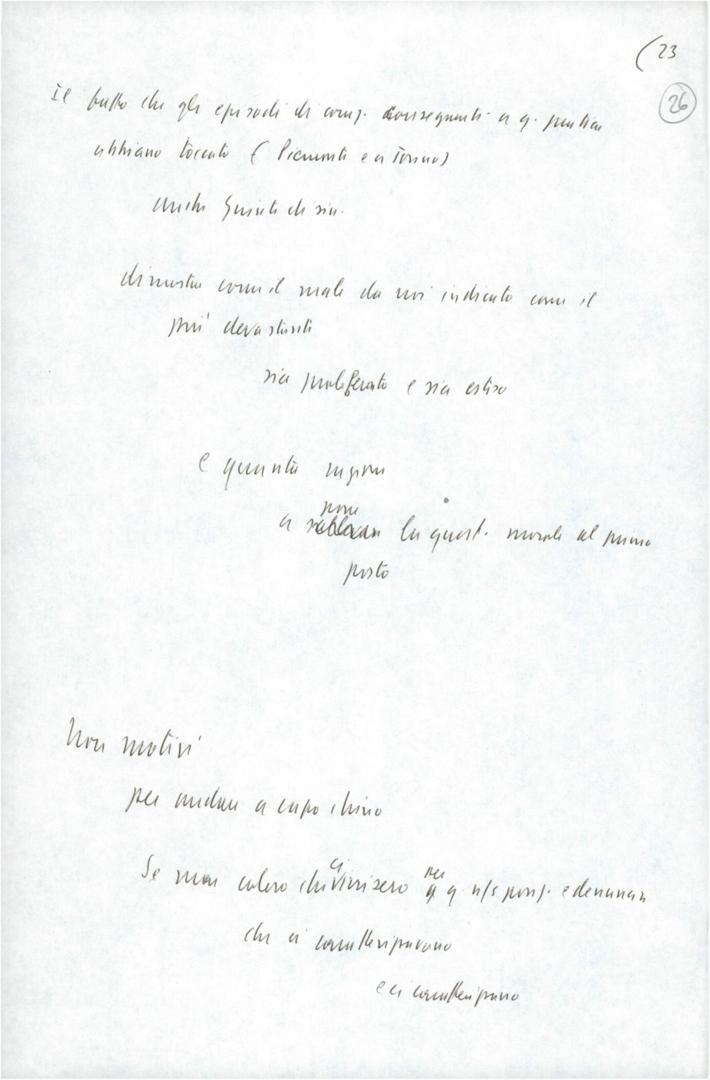 (23
26
Il fatto che gli episodi di corruz. conseguenti a q. pratica
abbiano toccato (Piemonte e a Torino)
anche Giunte di sin.
dimostra come il male da noi indicato come il
più devastante
sia proliferato e sia esteso
e quanta ragione
porre
a la quest. morale al primo
posto
Non motivi
per andare a capo chino
Se mai coloro che irrisero
ci per
q. e denunce
che ci caratterizzavano
e ci caratterizzano